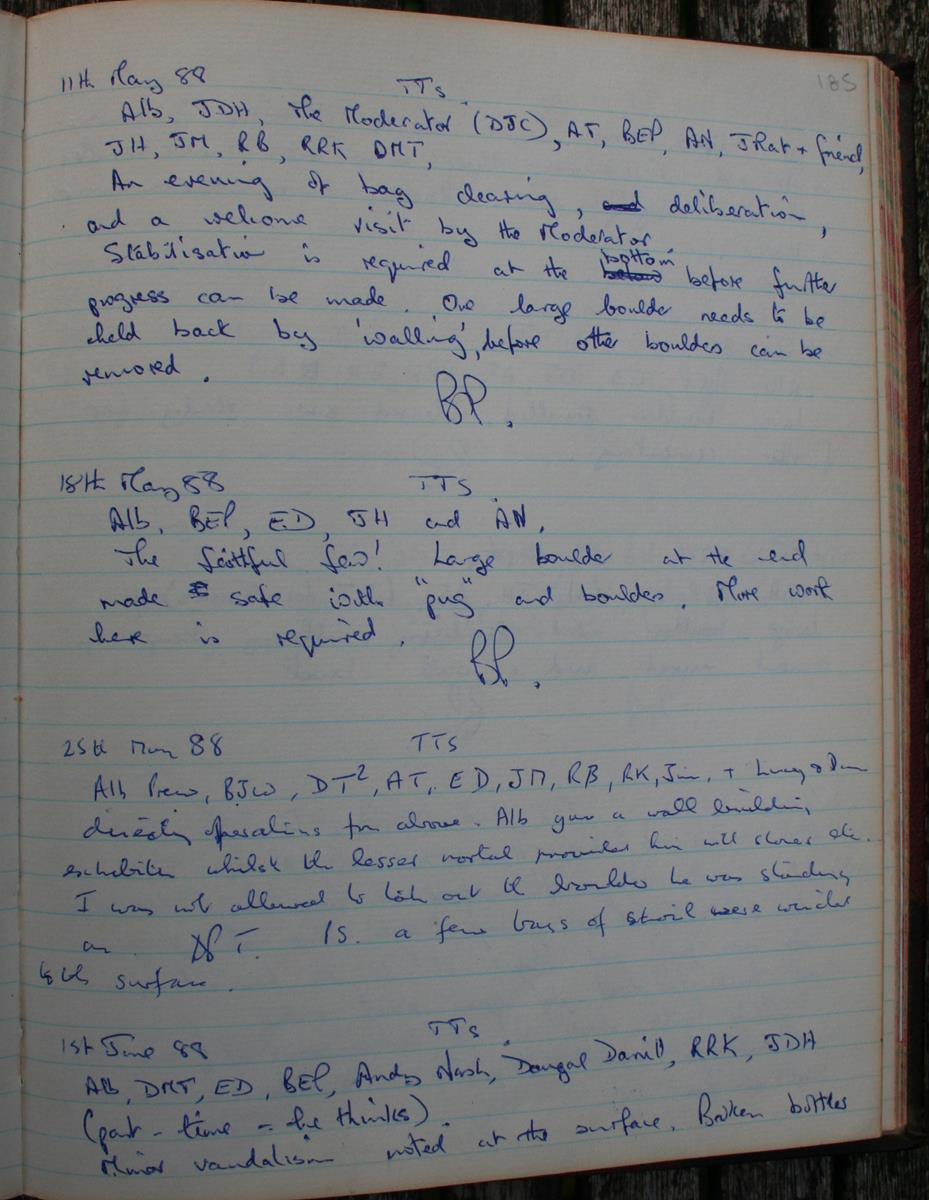 185
11th May 88 TTs.
Alb, JDH, The Moderator (DJC), AT, BEP, AN, JRat + friend,
JH, JM, RB, RRK DMT,
An evening of bag clearing, and deliberation,
and a welcome visit by the Moderator
Stabilisation is required at the bottom before further
progress can be made. One large boulder needs to be
held back by 'walling', before other boulders can be
removed.
BP.
18th May 88 TTS.
Alb, BEP, ED, JH and AN,
The faithful few! Large boulder at the end
made safe with "pug" and boulders. More work
here is required.
BP.
25th May 88 TTS
Alb Prew, BJW, DT², AT, ED, JM, RB, RK, Jim, +
directing operations from above. Alb gave a wall building
exhibition whilst the lesser mortal provided him with stones etc.
I was not allowed to take out the boulder he was standing
on. T. PS. a few bags of spoil were winched
to the surface.
1st June 88 TTs.
Alb, DMT, ED, BEP, Andy Nash, Dougal Daniell, RRK, JDH
(part-time - he thinks).
Minor vandalism noted at the surface. Broken bottles